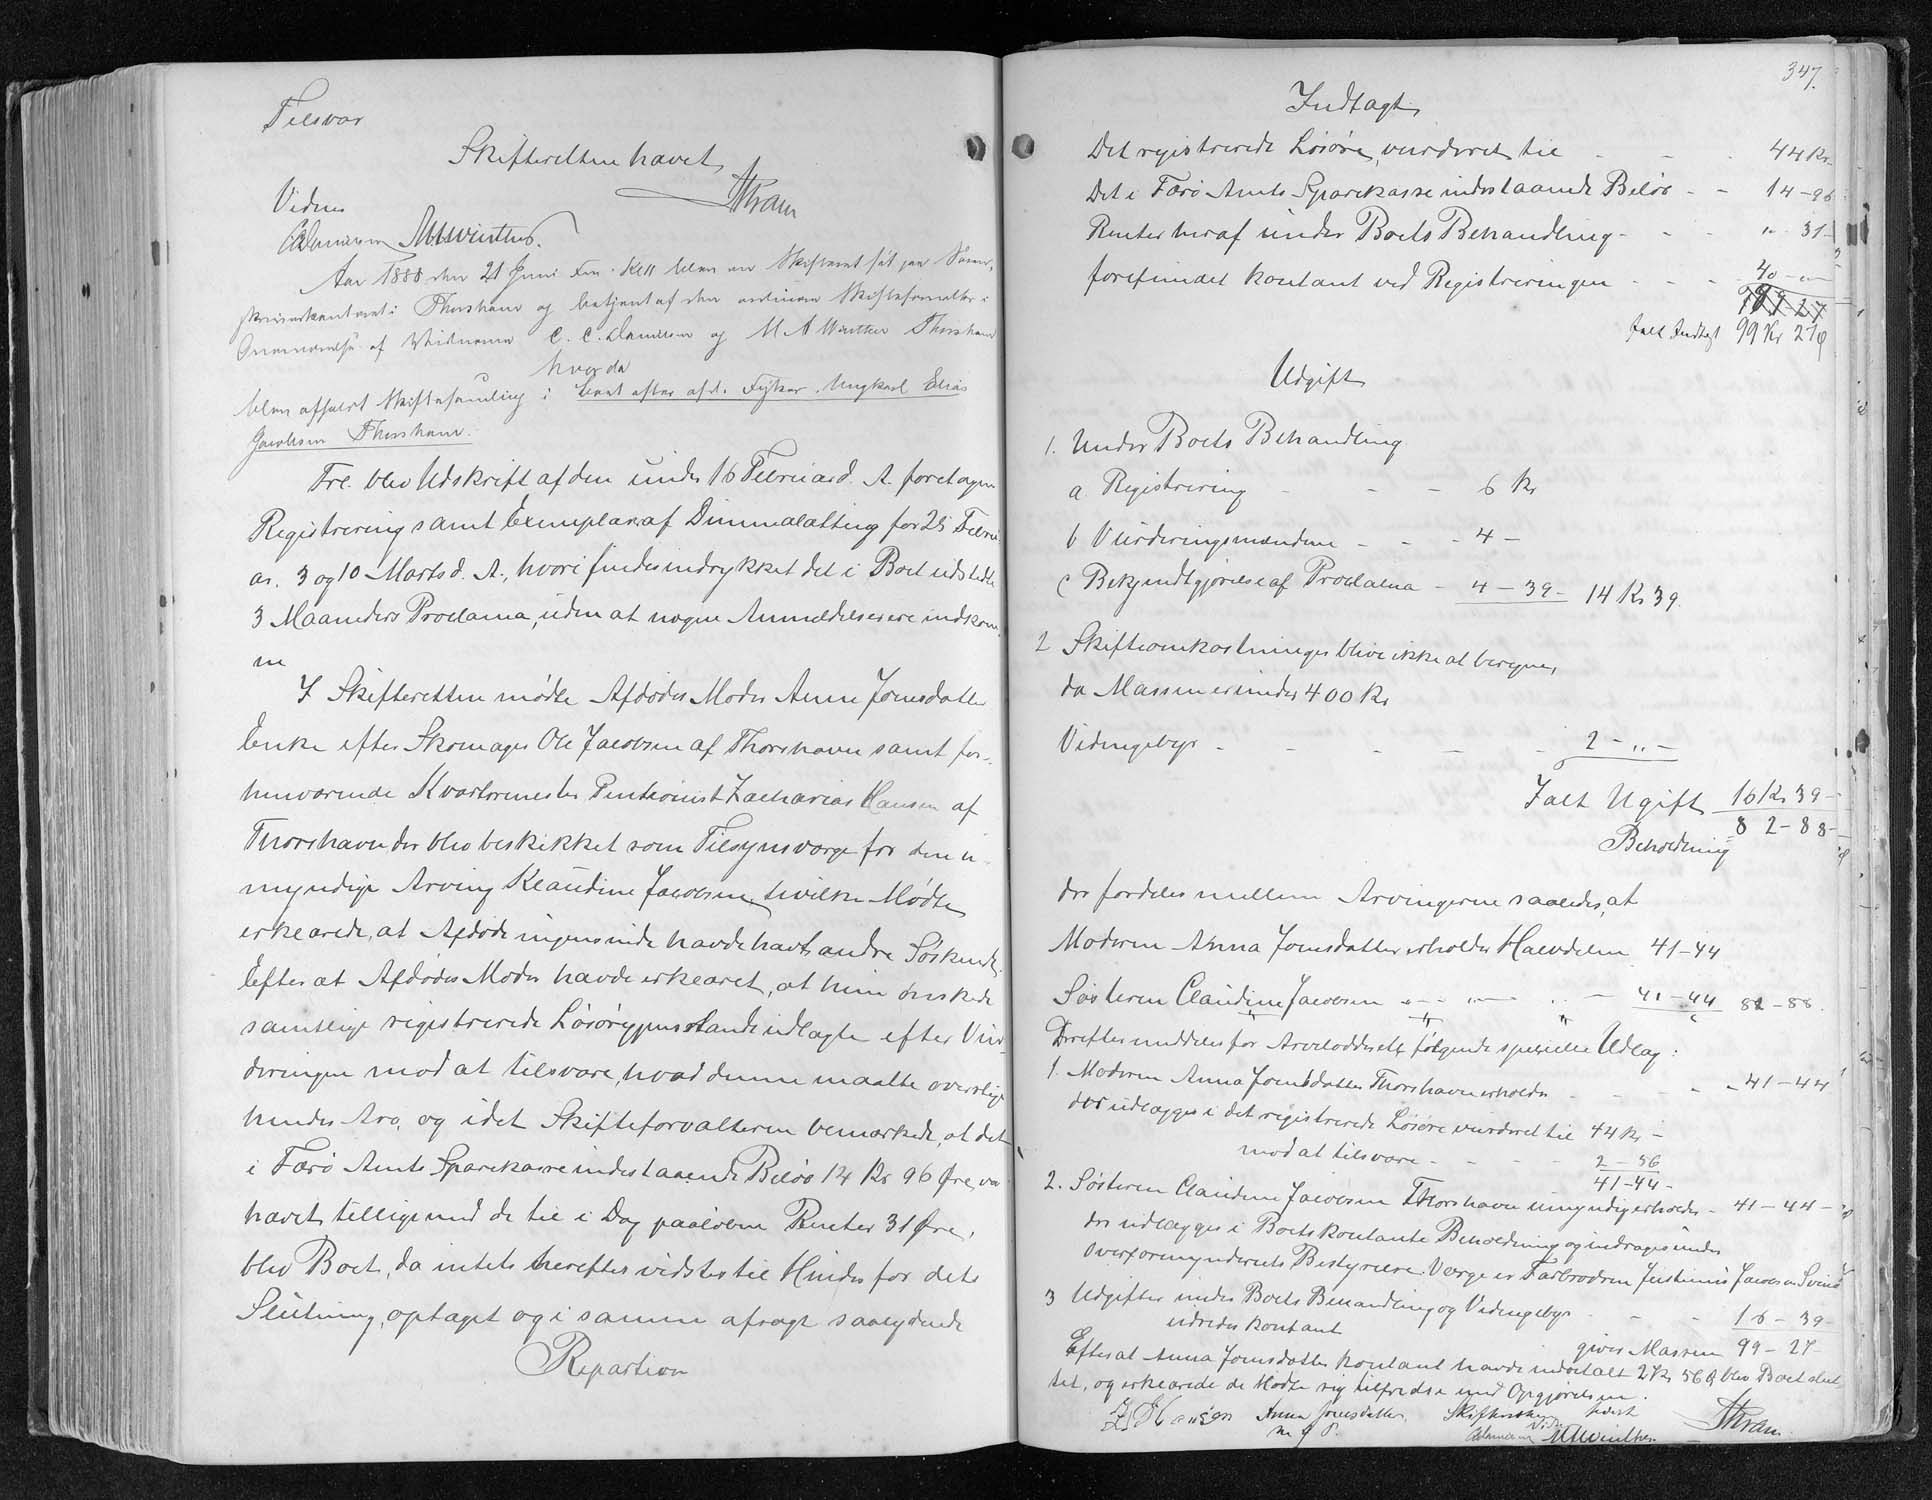 Tilsvar
Skifteretten hævet
Vidner
Thram
CDanielsen MAWinther.
Aar 1888 den 21 Juni Fm. Kl 11 blev en Skifteret sat paa Soren-
skriverkontoret i Thorshavn og betjent af den ordinære Skifteforvalter i
Overværelse af Vidnerne C. C. Danielsen og M. A Winther Thorshavn
hvorda
blev afholdt Skiftesamling i boet efter afd. Ungkarl Elias
Jacobsen Thorshavn.
Frl. blev Udskrift af den under 16 Februar d. A. foretagne
Registrering samt Exemplarer af Dimmalætting for 25 Febru
ar. 3 og 10 Marts d. A., hvori findes indrykket det i Boet udstedte
3 Maaneders Proclama, uden at nogen Anmeldelser ere indkom
ne
I Skifteretten mødte Afdødes Moder Anne Joensdatter
Enke efter Skomager Ole Jacobsen af Thorshavn samt for-
henværende Kvartermester Pentionist Zacharias Hansen af
Thorshavn der blev beskikket som Tilsynsværge for den u-
myndige Arving Klaudine Jacobsen, hvilke Mødte
erklærede, at Afdøde ingensinde havde havt andre Søskende.
Efter at Afdødes Moder havde erklæret, at hun ønskede
samtlige registrerede Løsøregjenstande udlagte efter Vur-
deringen mod at tilsvare, hvad denne maatte overstige
hendes Arv, og idet Skifteforvalteren bemærkede, at det
i Færø Amts Sparekasse indestaaende Beløb 14 Kr 96 Øre, var
hævet tilligemed de til i Dag paaløbne Renter 31 Øre,
blev Boet, da intet herefter vidstes til Hinder for dets
Slutning, optaget og i samme afsagt saalydende
Repartion
347.
Indtægt
Det registrerede Løsøre, vurderet til - - - 44 Kr-
Det i Færø Amts Sparekasse indestaaende Beløb - - 14-96
Renter heraf under Boets Behandling - - - " - 31-
forefundet kontant ved Registreringen - - - 40 - " -
Ialt Indtægt 99 Kr 27 Ø
Udgift
1. Under Boets Behandling
a Registrering - - - 6 Kr
b Vurderingsmændene - - - 4 -
c Bekjendtgjørelse af Proclama - 4 - 39 - 14 Kr 39.
2 Skifteomkostninger blive ikke at beregne,
da Massen er under 400 Kr
Vidnegebyr - - - - - 2 - " -
Ialt Ugift 16 Kr 39 -
Beholdning 82 - 88 -
der fordeles mellem Arvingerne saaledes, at
Moderen Anna Joensdatter erholder Halvdelen 41-44
Søsteren Claudine Jacobsen " - " - " - 41-44 82-88.
Derefter meddeles for Arvelodderne følgende specielle Udlæg:
1. Moderen Anna Joensdatter Thorshavn erholder - - - 41-44
der udlægges i det registrerede Løsøre vurderet til 44 Kr -
mod at tilsvare - - - - 2 - 56
41-44-
2. Søsteren Claudine Jacobsen Thorshavn umyndig erholder - 41-44-
der udlægges i Boets kontante Beholdning og inddrages under
Overformynderiets Bestyrelse. Værge er Farbrodren Justinus Jacobsen
3 Udgifter under Boets Behandling og Vidnegebyr - - 16 - 39-
udredes kontant
giver Massen 99 - 27-
Efter at Anna Joensdatter kontant havde indbetalt 2 Kr 56 Ø blev Boet slut
tet, og erklærede de Mødte sig tilfredse med Opgjørelsen.
Z Hansen Anna Joensdatter. Skifteretten hævet
m f P. Vidner Thram.
CDanielsen MAWinther